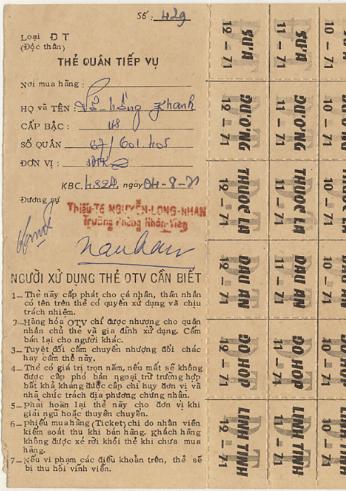 Số : 429
Loại ĐT
(Độc thân)
THẺ QUÂN TIẾP VỤ
Nơi mua hàng :
HỌ và TÊN : Hồng Khanh
CẤP BẬC : H8
SỐ QUÂN 67/601.405
ĐƠN VỊ :
KBC. 4.824 ngày 04-8-71
Đương sự
Thiếu-Tá NGUYỄN-LONG-NHAN
Trưởng Phòng Nhân-Viên
NGƯỜI XỬ DỤNG THẺ QTV CẦN BIẾT
1_ Thẻ này cấp phát cho cá nhân, thân nhân
có tên trên thẻ có quyền xử dụng và chịu
trách nhiệm.
2_ Hàng hóa QTV chỉ được nhượng cho quân
nhân chủ thẻ và gia đình xử dụng. Cấm
bán lại cho người khác.
3_ Tuyệt đối cấm chuyển nhượng đổi chác
hay cầm thẻ này.
4_ Thẻ có giá trị trọn năm, nếu mất sẽ không
được cấp phó bản ngoại trừ trường hợp
bất khả kháng được cấp chỉ huy đơn vị và
nhà chức trách địa phương chứng nhận.
5_ Phải hoàn lại thẻ này cho đơn vị khi
giải ngũ hoặc thuyên chuyển.
6_ Phiếu mua hàng (Ticket) chỉ do nhân viên
kiểm soát thu khi bán hàng. Khách hàng
không được xé rời khỏi thẻ khi chưa mua
hàng.
7_ Nếu vi phạm các điều khoản trên, thẻ sẽ
bị thu hồi vĩnh viễn.
ĐT SỮA 12 - 71
ĐT SỮA 11 - 71
10 - 71
ĐT ĐƯỜNG 12 - 71
ĐT ĐƯỜNG 11 - 71
10 - 71
ĐT THUỐC LÁ 12 - 71
ĐT THUỐC LÁ 11 - 71
10 - 71
ĐT DẦU ĂN 12 - 71
ĐT DẦU ĂN 11 - 71
10 - 71
ĐT ĐỒ HỘP 12 - 71
ĐT ĐỒ HỘP 11 - 71
10 - 71
ĐT LINH TINH 12 - 71
ĐT LINH TINH 11 - 71
10 - 71